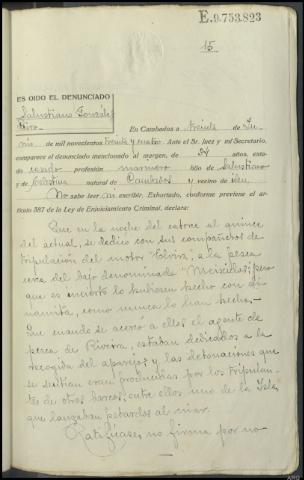 E.9.753.823
15
ES OIDO EL DENUNCIADO
Salustiano González
Piro.
En Cambados a treinta de Ju-
nio de mil novecientos treinta y cuatro Ante el Sr. Juez y mí Secretario,
comparece el denunciado mencionado al margen, de 24 años, esta-
do casado profesión marinero hijo de Salustiano
y de Cristina natural de Cambados y vecino de idm.
No sabe leer ni escribir. Exhortado, conforme previene el ar-
tículo 387 de la Ley de Enjuiciamiento Criminal, declara:
Que en la noche del catorce al quince
del actual, se dedicó con sus compañeros de
tripulación del motor "Elvira", a la pesca
cerca del bajo denominado pero
que es incierto lo hubiesen hecho con di-
namita, como nunca lo han hecho.-
Que cuando se acercó a ellos el agente de
pesca de Riveira, estaban dedicados a la
recogida del aparejo; y las detonaciones que
se sentían eran producidas por los tripulan-
tes de otros barcos, entre ellos uno de la Isla,
que lanzaban petardos al mar.
Ratifícase; no firma por no